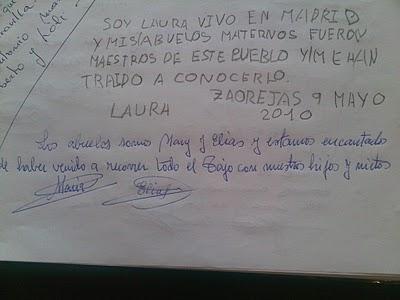 SOY LAURA VIVO EN MADRID
Y MIS ABUELOS MATERNOS FUERON
MAESTROS DE ESTE PUEBLO Y ME HAN
TRAIDO A CONOCERLO.
ZAOREJAS 9 MAYO
LAURA 2010
Los abuelos somos Mary y Elias y estamos encantado
de haber venido a recorrer todo el Tajo con nuestro hijos y nietos
Maria Elias